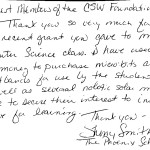 Member of the CSW Foundation
Thank you so very much for
recent grant you gave to m
Science class. I have used
money to purchase microbits a
for use by the students
well as several robotic solar m
to their interest to in
for learning. Thank you -
Sherry Smith
The Phoenix Sch